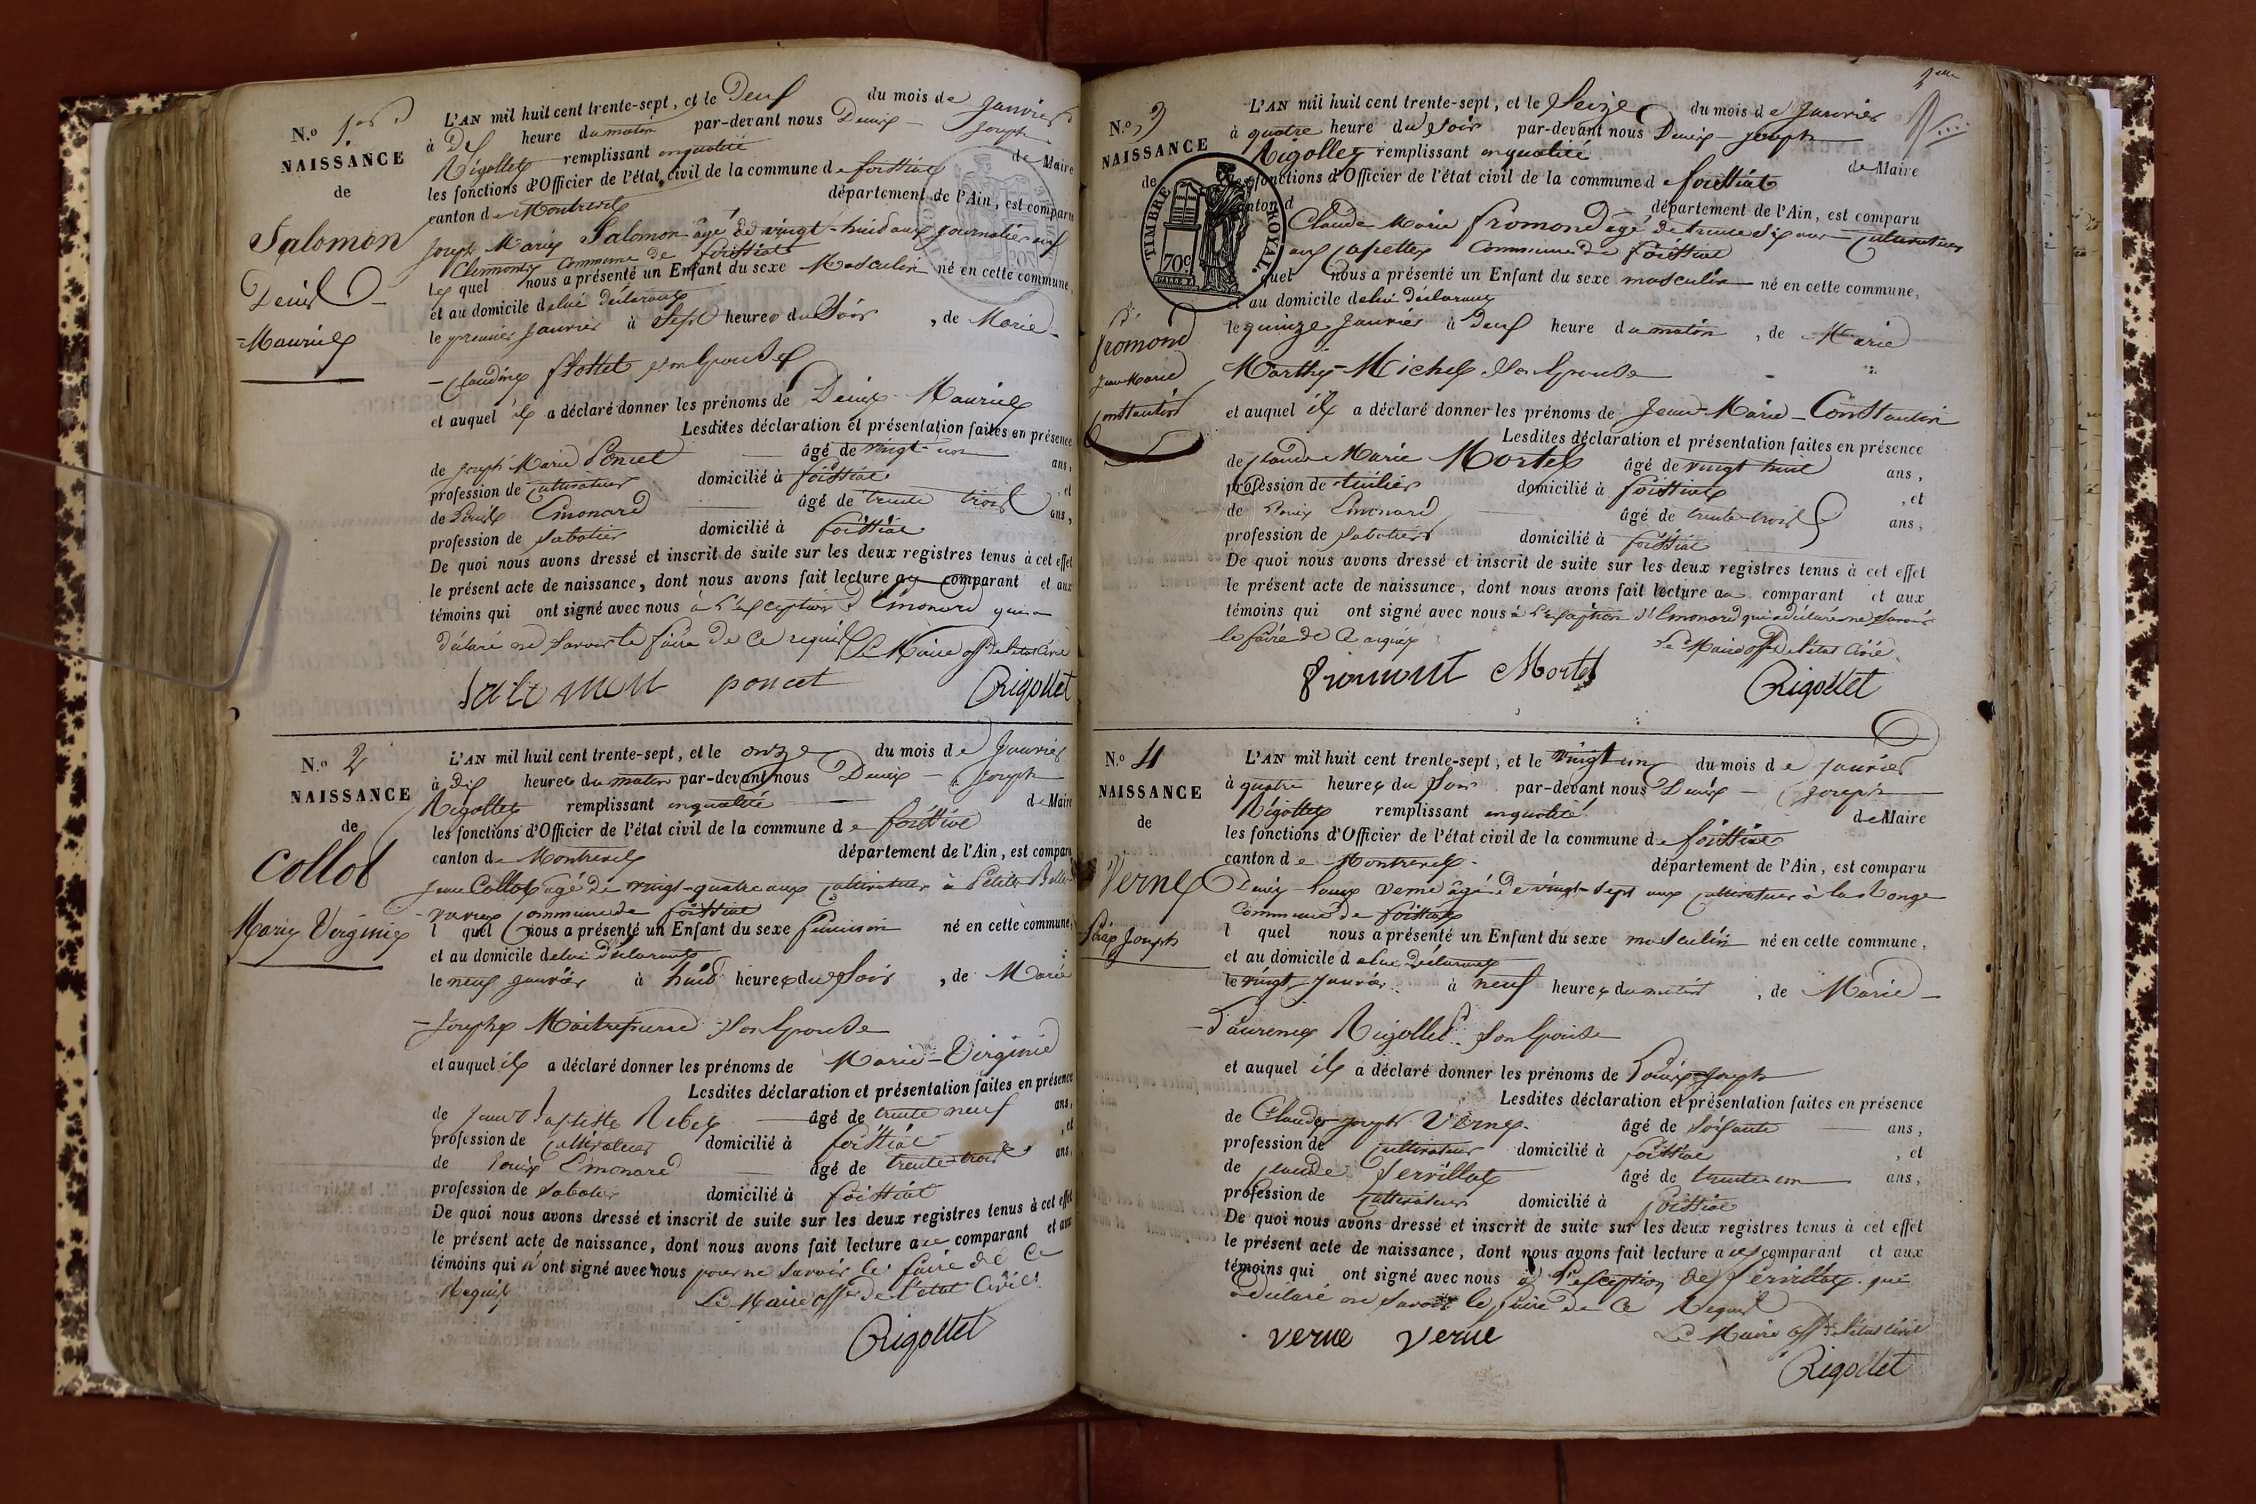 N.o 1er
NAISSANCE
de
Salomon
Denis
Marie
L'AN mil huit cent trente-sept, et le Deux du mois de Janvier
à Dix heure du matin par-devant nous Denis - Joseph
Rigollet remplissant en qualité de Maire
les fonctions d'Officier de l'état civil de la commune de foissiat
canton de Montrevel département de l'Ain, est comparu
Joseph Marie Salomon âgé de vingt-huit ans journalier aux
commune de foissiat
Le quel nous a présenté un Enfant du sexe Masculin né en cette commune,
et au domicile de lui déclarant
le premier janvier à Sept heures du Soir, de Marie-
- Claudine son Epouse
et auquel il a déclaré donner les prénoms de Denis
Lesdites déclaration et présentation faites en présence
de Joseph Marie Poncet âgé de vingt-un ans,
profession de cultivateur domicilié à foissiat, et
de Louis Emonard âgé de trente trois ans,
profession de sabotier domicilié à foissiat
De quoi nous avons dressé et inscrit de suite sur les deux registres tenus à cet effet
le présent acte de naissance, dont nous avons fait lecture au comparant et aux
témoins qui ont signé avec nous à l'exception d'Emonard qui a
déclaré ne savoir le faire de ce requis Le Maire off. de l'état Civil
Salomon poncet Rigollet
N.o 2
NAISSANCE
de
Collot
Marie Virginie
L'AN mil huit cent trente-sept, et le onze du mois de Janvier
à dix heures du matin par-devant nous Denis - Joseph
Rigollet remplissant en qualité de Maire
les fonctions d'Officier de l'état civil de la commune de foissiat
canton de Montrevel département de l'Ain, est comparu
Jean Collot âgé de vingt-quatre ans cultivateur à Petite Belle-
commune de foissiat
l quel nous a présenté un Enfant du sexe féminin né en cette commune,
et au domicile de lui déclarant
le neuf janvier à huit heures du Soir, de Marie
- Josephe Maitrepierre son Epouse
et auquel il a déclaré donner les prénoms de Marie-Virginie
Lesdites déclaration et présentation faites en présence
de Jean Baptiste Rebel âgé de trente neuf ans,
profession de cultivateur domicilié à foissiat, et
de Louis Emonard âgé de trente-trois ans,
profession de sabotier domicilié à foissiat
De quoi nous avons dressé et inscrit de suite sur les deux registres tenus à cet effet
le présent acte de naissance, dont nous avons fait lecture au comparant et aux
témoins qui n'ont signé avec nous pour ne savoir le faire de ce
Requis Le Maire off. de l'état Civil
Rigollet
2me
N.o 3
NAISSANCE
de
TIMBRE ROYAL.
70c
fromond
Jean Marie
Constantin
L'AN mil huit cent trente-sept, et le Seize du mois de Janvier
à quatre heure du Soir par-devant nous Denis - Joseph
Rigollet remplissant en qualité de Maire
les fonctions d'Officier de l'état civil de la commune de foissiat
canton d département de l'Ain, est comparu
Claude Marie fromond âgé de trente six ans cultivateur
aux commune de foissiat
quel nous a présenté un Enfant du sexe masculin né en cette commune,
et au domicile de lui déclarant
le quinze janvier à Deux heure du matin, de Marie
Marthe-Michel son Epouse
et auquel il a déclaré donner les prénoms de Jean-Marie-Constantin
Lesdites déclaration et présentation faites en présence
de Claude Marie Mortel âgé de vingt huit ans,
profession de tuilier domicilié à foissiat, et
de Louis Emonard âgé de trente-trois ans,
profession de sabotier domicilié à foissiat
De quoi nous avons dressé et inscrit de suite sur les deux registres tenus à cet effet
le présent acte de naissance, dont nous avons fait lecture au comparant et aux
témoins qui ont signé avec nous à l'exception d'Emonard qui a déclaré ne savoir
le faire de ce requis Le Maire off. de l'état Civil
fromont Mortel Rigollet
N.o 4
NAISSANCE
de
Verne
Louis Joseph
L'AN mil huit cent trente-sept, et le vingt un du mois de janvier
à quatre heures du Soir par-devant nous Denis - Joseph
Rigollet remplissant en qualité de Maire
les fonctions d'Officier de l'état civil de la commune de foissiat
canton de Montrevel département de l'Ain, est comparu
Denis-Louis verne âgé de vingt-sept ans cultivateur à la
commune de foissiat
l quel nous a présenté un Enfant du sexe masculin né en cette commune,
et au domicile de lui déclarant
le vingt janvier à neuf heures du matin, de Marie-
-Laurence Rigollet son Epouse
et auquel il a déclaré donner les prénoms de Louis-Joseph
Lesdites déclaration et présentation faites en présence
de Claude-Joseph Verne âgé de soixante ans,
profession de cultivateur domicilié à foissiat, et
de Claude Servillat âgé de trente-un ans,
profession de cultivateur domicilié à foissiat
De quoi nous avons dressé et inscrit de suite sur les deux registres tenus à cet effet
le présent acte de naissance, dont nous avons fait lecture au comparant et aux
témoins qui ont signé avec nous à l'exception de Servillat qui
a déclaré ne savoir le faire de ce Requis
Le Maire off. de l'état civil
verne verne
Rigollet